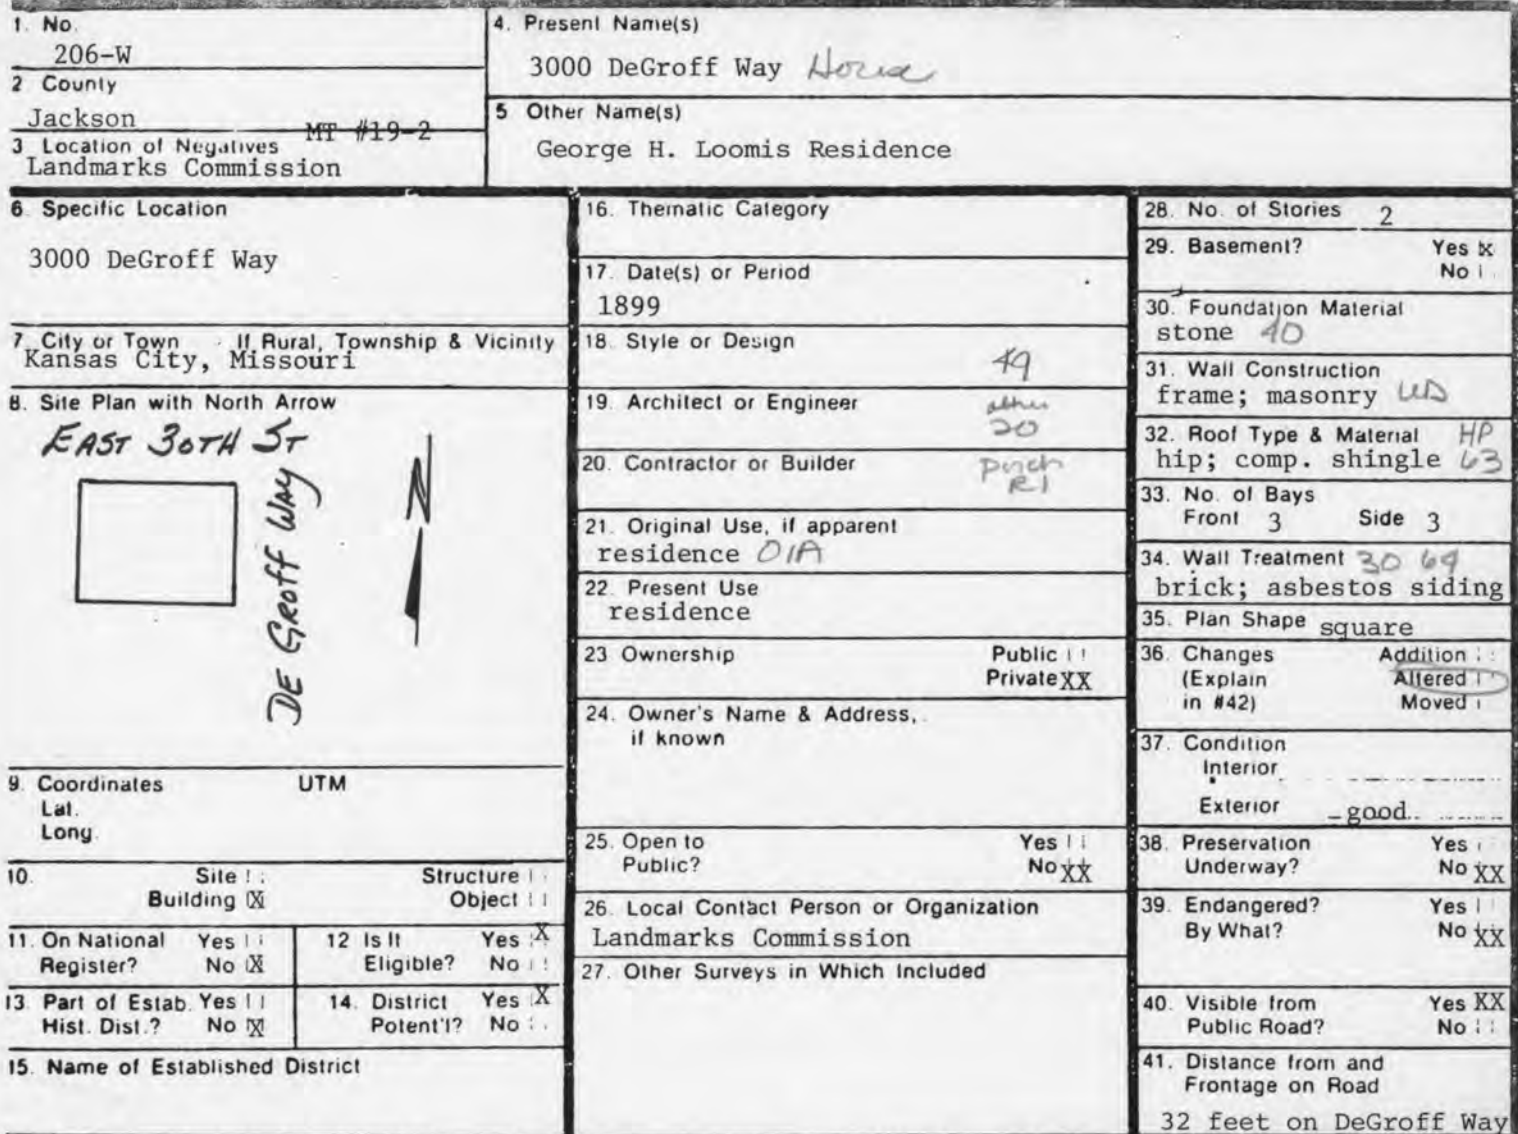 1. No.
206-W
2 County
Jackson
MT #19-2
3 Location of Negatives
Landmarks Commission
4. Present Name(s)
3000 DeGroff Way House
5 Other Name(s)
George H. Loomis Residence
6. Specific Location
3000 DeGroff Way
7. City or Town If Rural, Township & Vicinity
Kansas City, Missouri
8. Site Plan with North Arrow
EAST 30TH ST
DE GROFF WAY
N
9. Coordinates UTM
Lat.
Long.
10. Site Structure
Building X Object
11. On National Yes
Register? No X
12 Is It Yes X
Eligible? No
13. Part of Estab. Yes
Hist. Dist.? No X
14. District Yes X
Potent'l? No
15. Name of Established District
16. Thematic Category
17. Date(s) or Period
1899
18. Style or Design
49
19. Architect or Engineer
other
20
20. Contractor or Builder
porch
R1
21. Original Use, if apparent
residence 01A
22. Present Use
residence
23 Ownership Public
Private XX
24. Owner's Name & Address,
if known
25. Open to Yes
Public? No XX
26. Local Contact Person or Organization
Landmarks Commission
27. Other Surveys in Which Included
28. No. of Stories 2
29. Basement? Yes X
No
30. Foundation Material
stone 40
31. Wall Construction
frame; masonry WD
32. Roof Type & Material HP
hip; comp. shingle 63
33. No. of Bays
Front 3 Side 3
34. Wall Treatment 30 64
brick; asbestos siding
35. Plan Shape square
36. Changes Addition
(Explain Altered
in #42) Moved
37. Condition
Interior
Exterior good
38. Preservation Yes
Underway? No XX
39. Endangered? Yes
By What? No XX
40. Visible from Yes XX
Public Road? No
41. Distance from and
Frontage on Road
32 feet on DeGroff Way